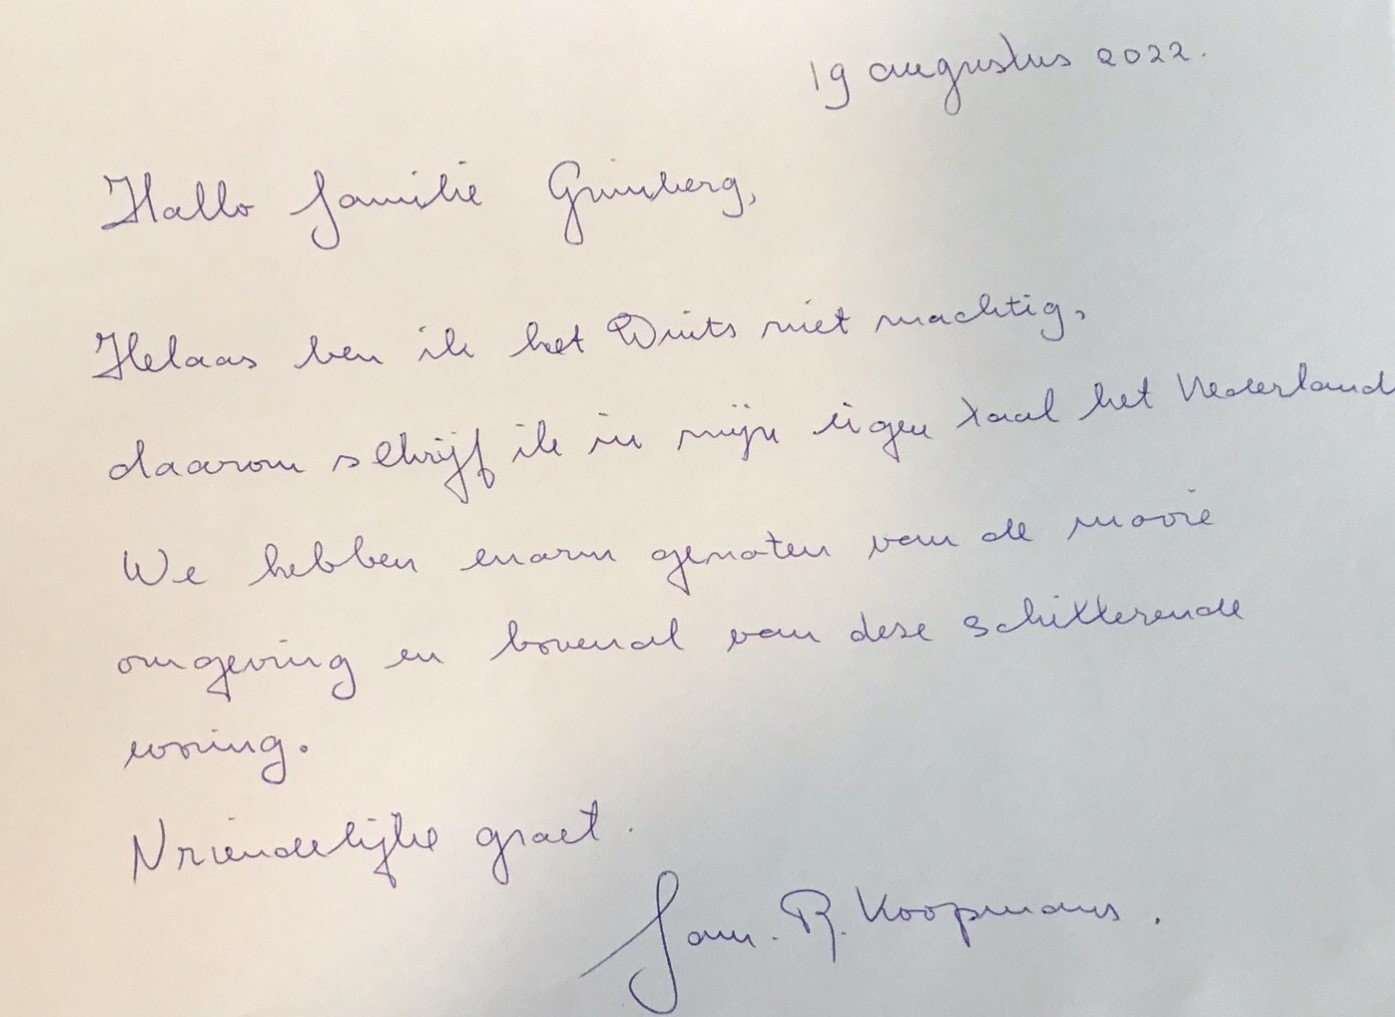 19 augustus 2022.
Hallo familie Grünberg,
Helaas ben ik het Duits niet machtig,
daarom schrijf ik in mijn eigen taal het Nederland
We hebben enorm genoten van de mooie
omgeving en bovenal van deze schitterende
woning.
Vriendelijke groet.
Fam. R. Koopmans.